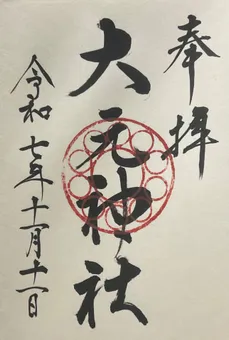 奉拝
大元神社
令和七年十一月十一日